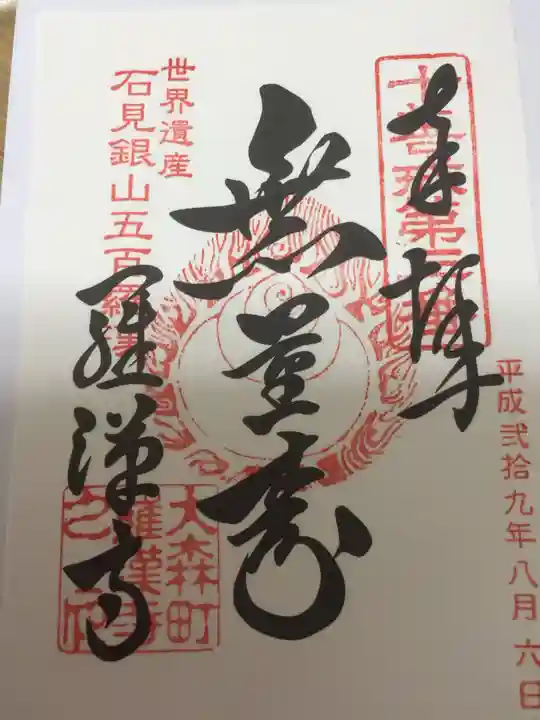 奉拝
平成弐拾九年八月六日
無量寿
世界遺産
石見銀山五百羅漢
羅漢寺
大森町
羅漢寺